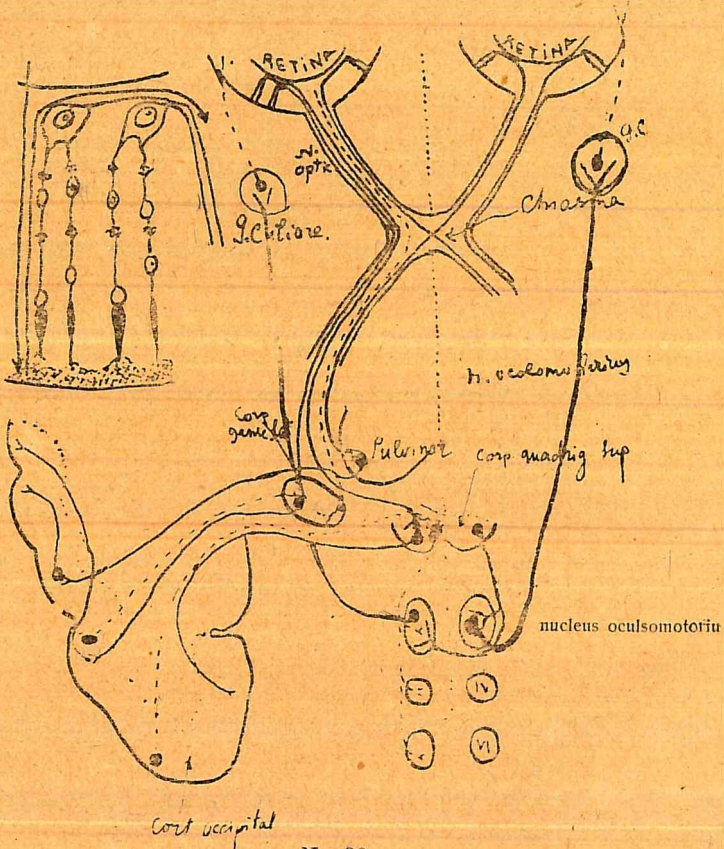 RETINA
RETINA
N.
optic
g.c
Chiasma
g.Ciliare.
n. ocolomotorius
Corp
genicl
Pulvinar
Corp quadrig sup
nucleus oculsomotoriu
IV
VI
Cort occipital